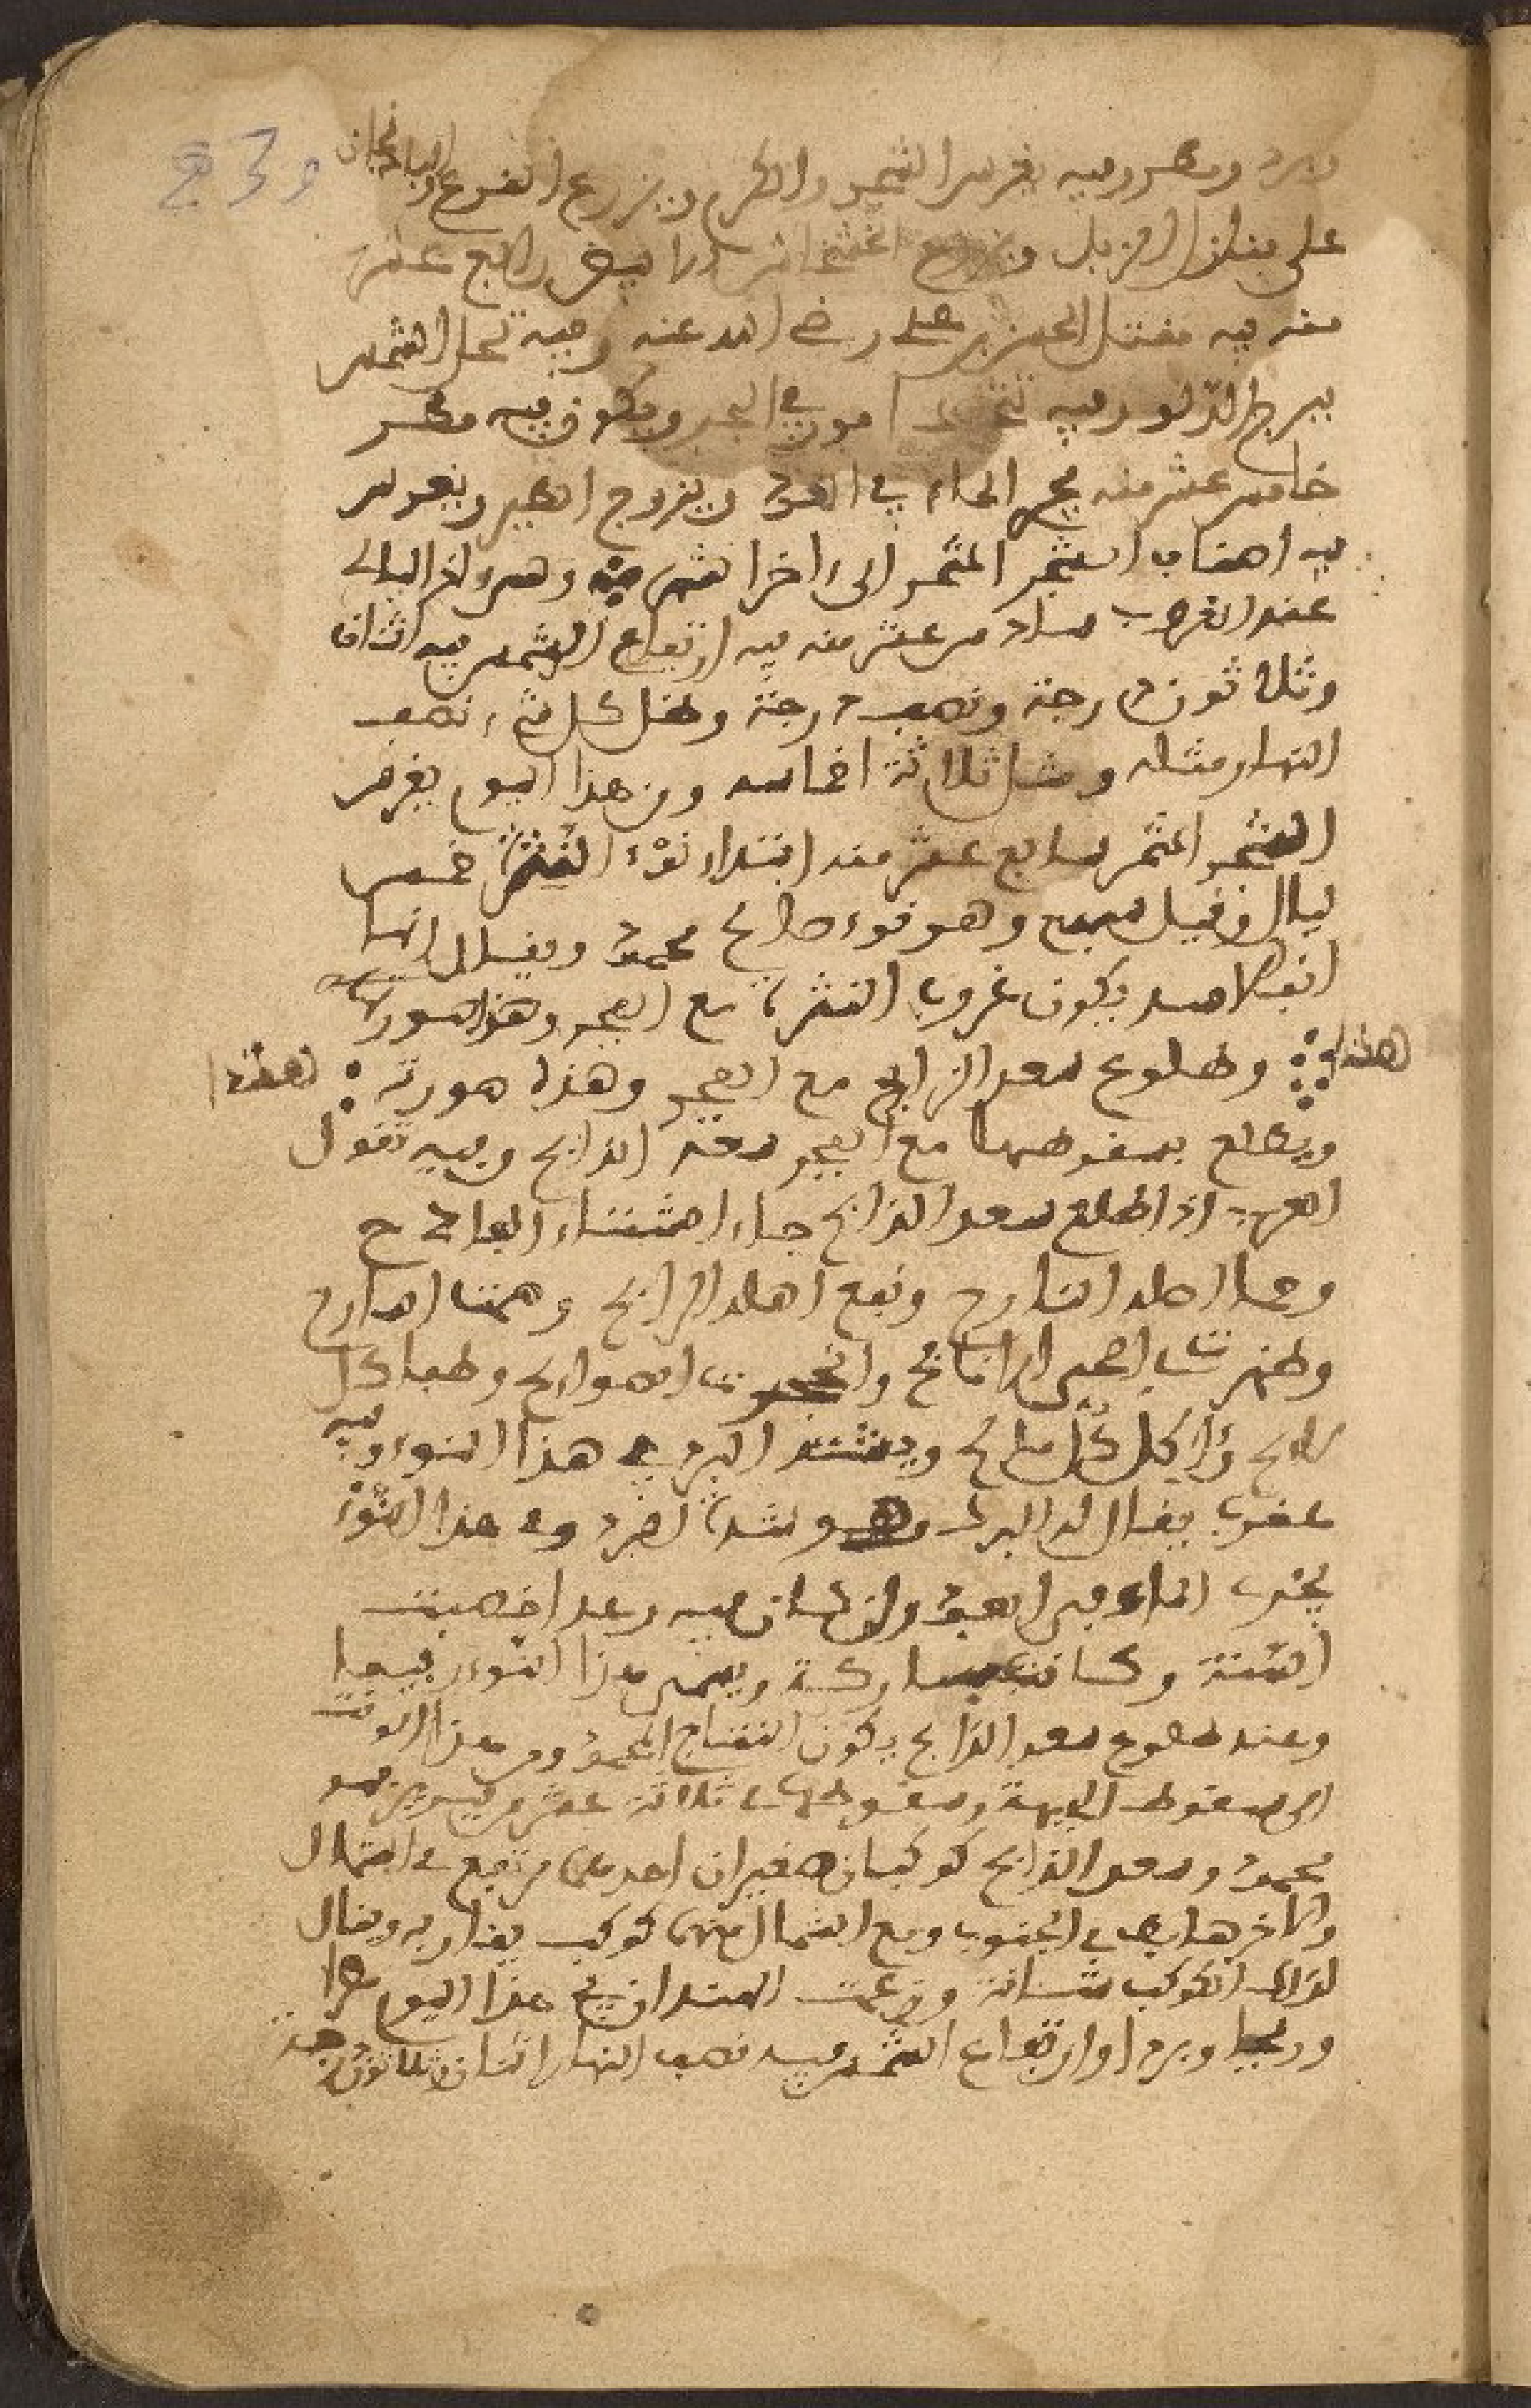 وبرد ومطر وفيه يغرس الشجر والكرم ويزرع القرع والباذنجان
على بنادل الزبل ويزرع رابع عشر
منه فيه مقتل الحسين بن علي رضي الله عنه وفيه تحل الشمس
ببرج الدلو وفيه في البحر ويكون فيه مطر
خامس عشر منه يجري الماء في العود ويزوج الطير ويغرس
فيه اصناف الشجر المثمر الى اخر الشهر وهو اخر الليالي
عند العرب سادس عشر منه فيه ارتفاع الشمس فيه اثنان
وثلاثون درجة ونصف درجة وظل كل شيء نصف
النهار مثله ومثل ثلاثة اخماسه ومن هذا اليوم يغرس
الشجر المثمر سابع عشر منه ابتداء نوء النثرة خمس
ليال وقيل سبع وهو نوء صالح محمود ويقال انها
انف الاسد يكون غروب النثرة مع الفجر وهذه صورتها
هكذا وطلوع سعد الذابح مع الفجر وهذه صورته هكذا
ويطلع بسقوطها مع الفجر سعد الذابح وفيه تقول
العرب اذا طلع سعد الذابح جاء الشتاء الفادح
وحما اهله النابح ونفع اهله الرابح وهمت السارح
وظهرت في الحي الانافح وانجحرت السوابح وطفا كل
سابح واكل كل مالح ويشتد البرد في هذا النوء وفيه
عقرب يقال له البرك وهو شدة القر وفي هذا النوء
يجري الماء في العود وان كان فيه رعد اخصبت
السنة وكانت مباركة ويسمى هذا النوء ربيعيا
وعند طلوع سعد الذابح يكون النتاج المحمود ومن هذا الوقت
الى سقوط الجبهة وسقوطها ثلاثة عشر من فبراير فهو
محمود وسعد الذابح كوكبان صغيران احدهما مرتفع في الشمال
والاخر هابط في الجنوب ومع الشمال منهما كوكب يقاربه ويقال
لذلك الكوكب شاته وزعمت الهند ان في هذا اليوم مطرا
وريحا وبردا وارتفاع الشمس فيه نصف النهار اثنان وثلاثون درجة